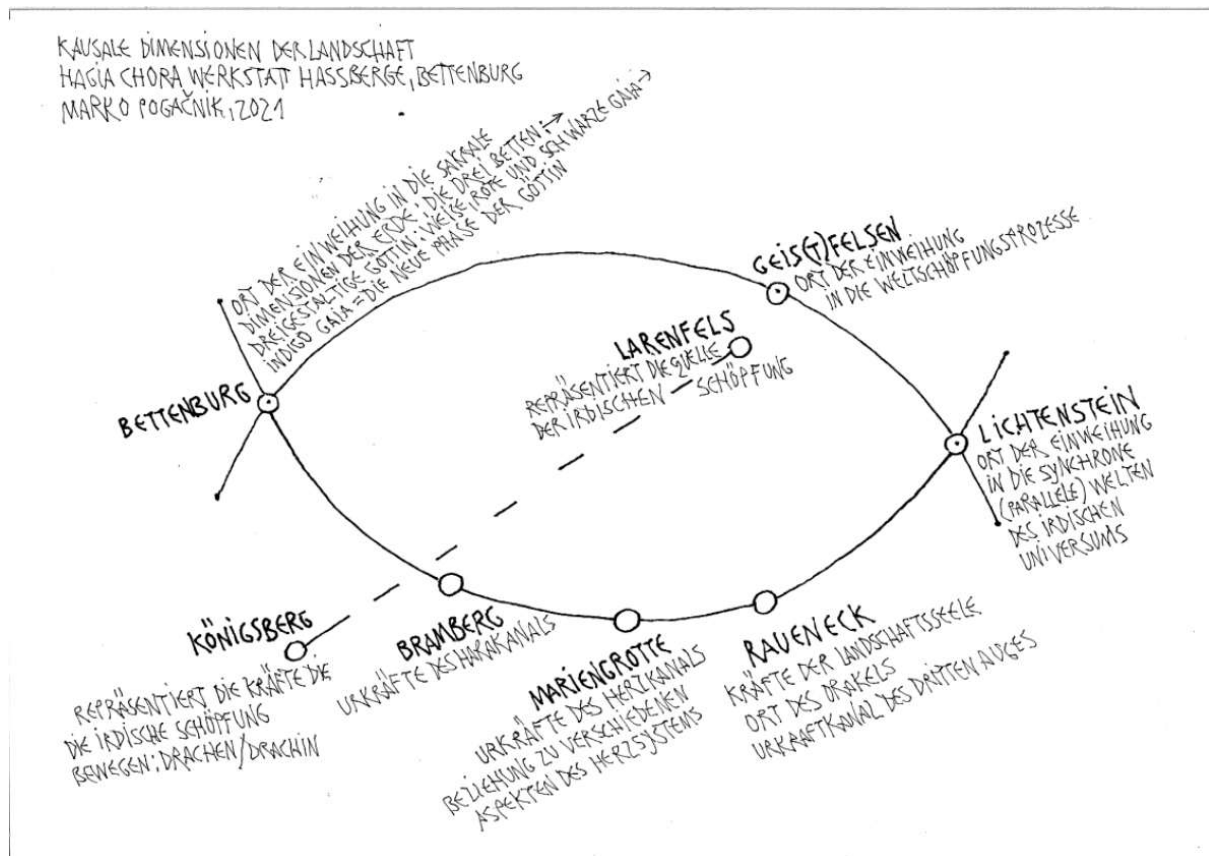 KAUSALE DIMENSIONEN DER LANDSCHAFT
HAGIA CHORA WERKSTATT HASSBERGE, BETTENBURG
MARKO POGAČNIK, 2021
ORT DER EINWEIHUNG IN DIE SAKRALE
DIMENSIONEN DER ERDE: DIE DREI BETTEN: →
DREIGESTALTIGE GÖTTIN: WEISE, ROTE UND SCHWARZE GAIA →
INDIGO GAIA = DIE NEUE PHASE DER GÖTTIN
BETTENBURG
GEIS(T)FELSEN
ORT DER EINWEIHUNG
IN DIE WELTSCHÖPFUNGSPROZESSE
LARENFELS
REPRÄSENTIERT DIE QUELLE
DER IRDISCHEN SCHÖPFUNG
LICHTENSTEIN
ORT DER EINWEIHUNG
IN DIE SYNCHRONE
(PARALLELE) WELTEN
DES IRDISCHEN
UNIVERSUMS
KÖNIGSBERG
REPRÄSENTIERT DIE KRÄFTE DIE
DIE IRDISCHE SCHÖPFUNG
BEWEGEN: DRACHEN/DRACHIN
BRAMBERG
URKRÄFTE DES HARAKANALS
MARIENGROTTE
URKRÄFTE DES HERZKANALS
BEZIEHUNG ZU VERSCHIEDENEN
ASPEKTEN DES HERZSYSTEMS
RAUENECK
KRÄFTE DER LANDSCHAFTSSEELE
ORT DES ORAKELS
URKRAFTKANAL DES DRITTEN AUGES